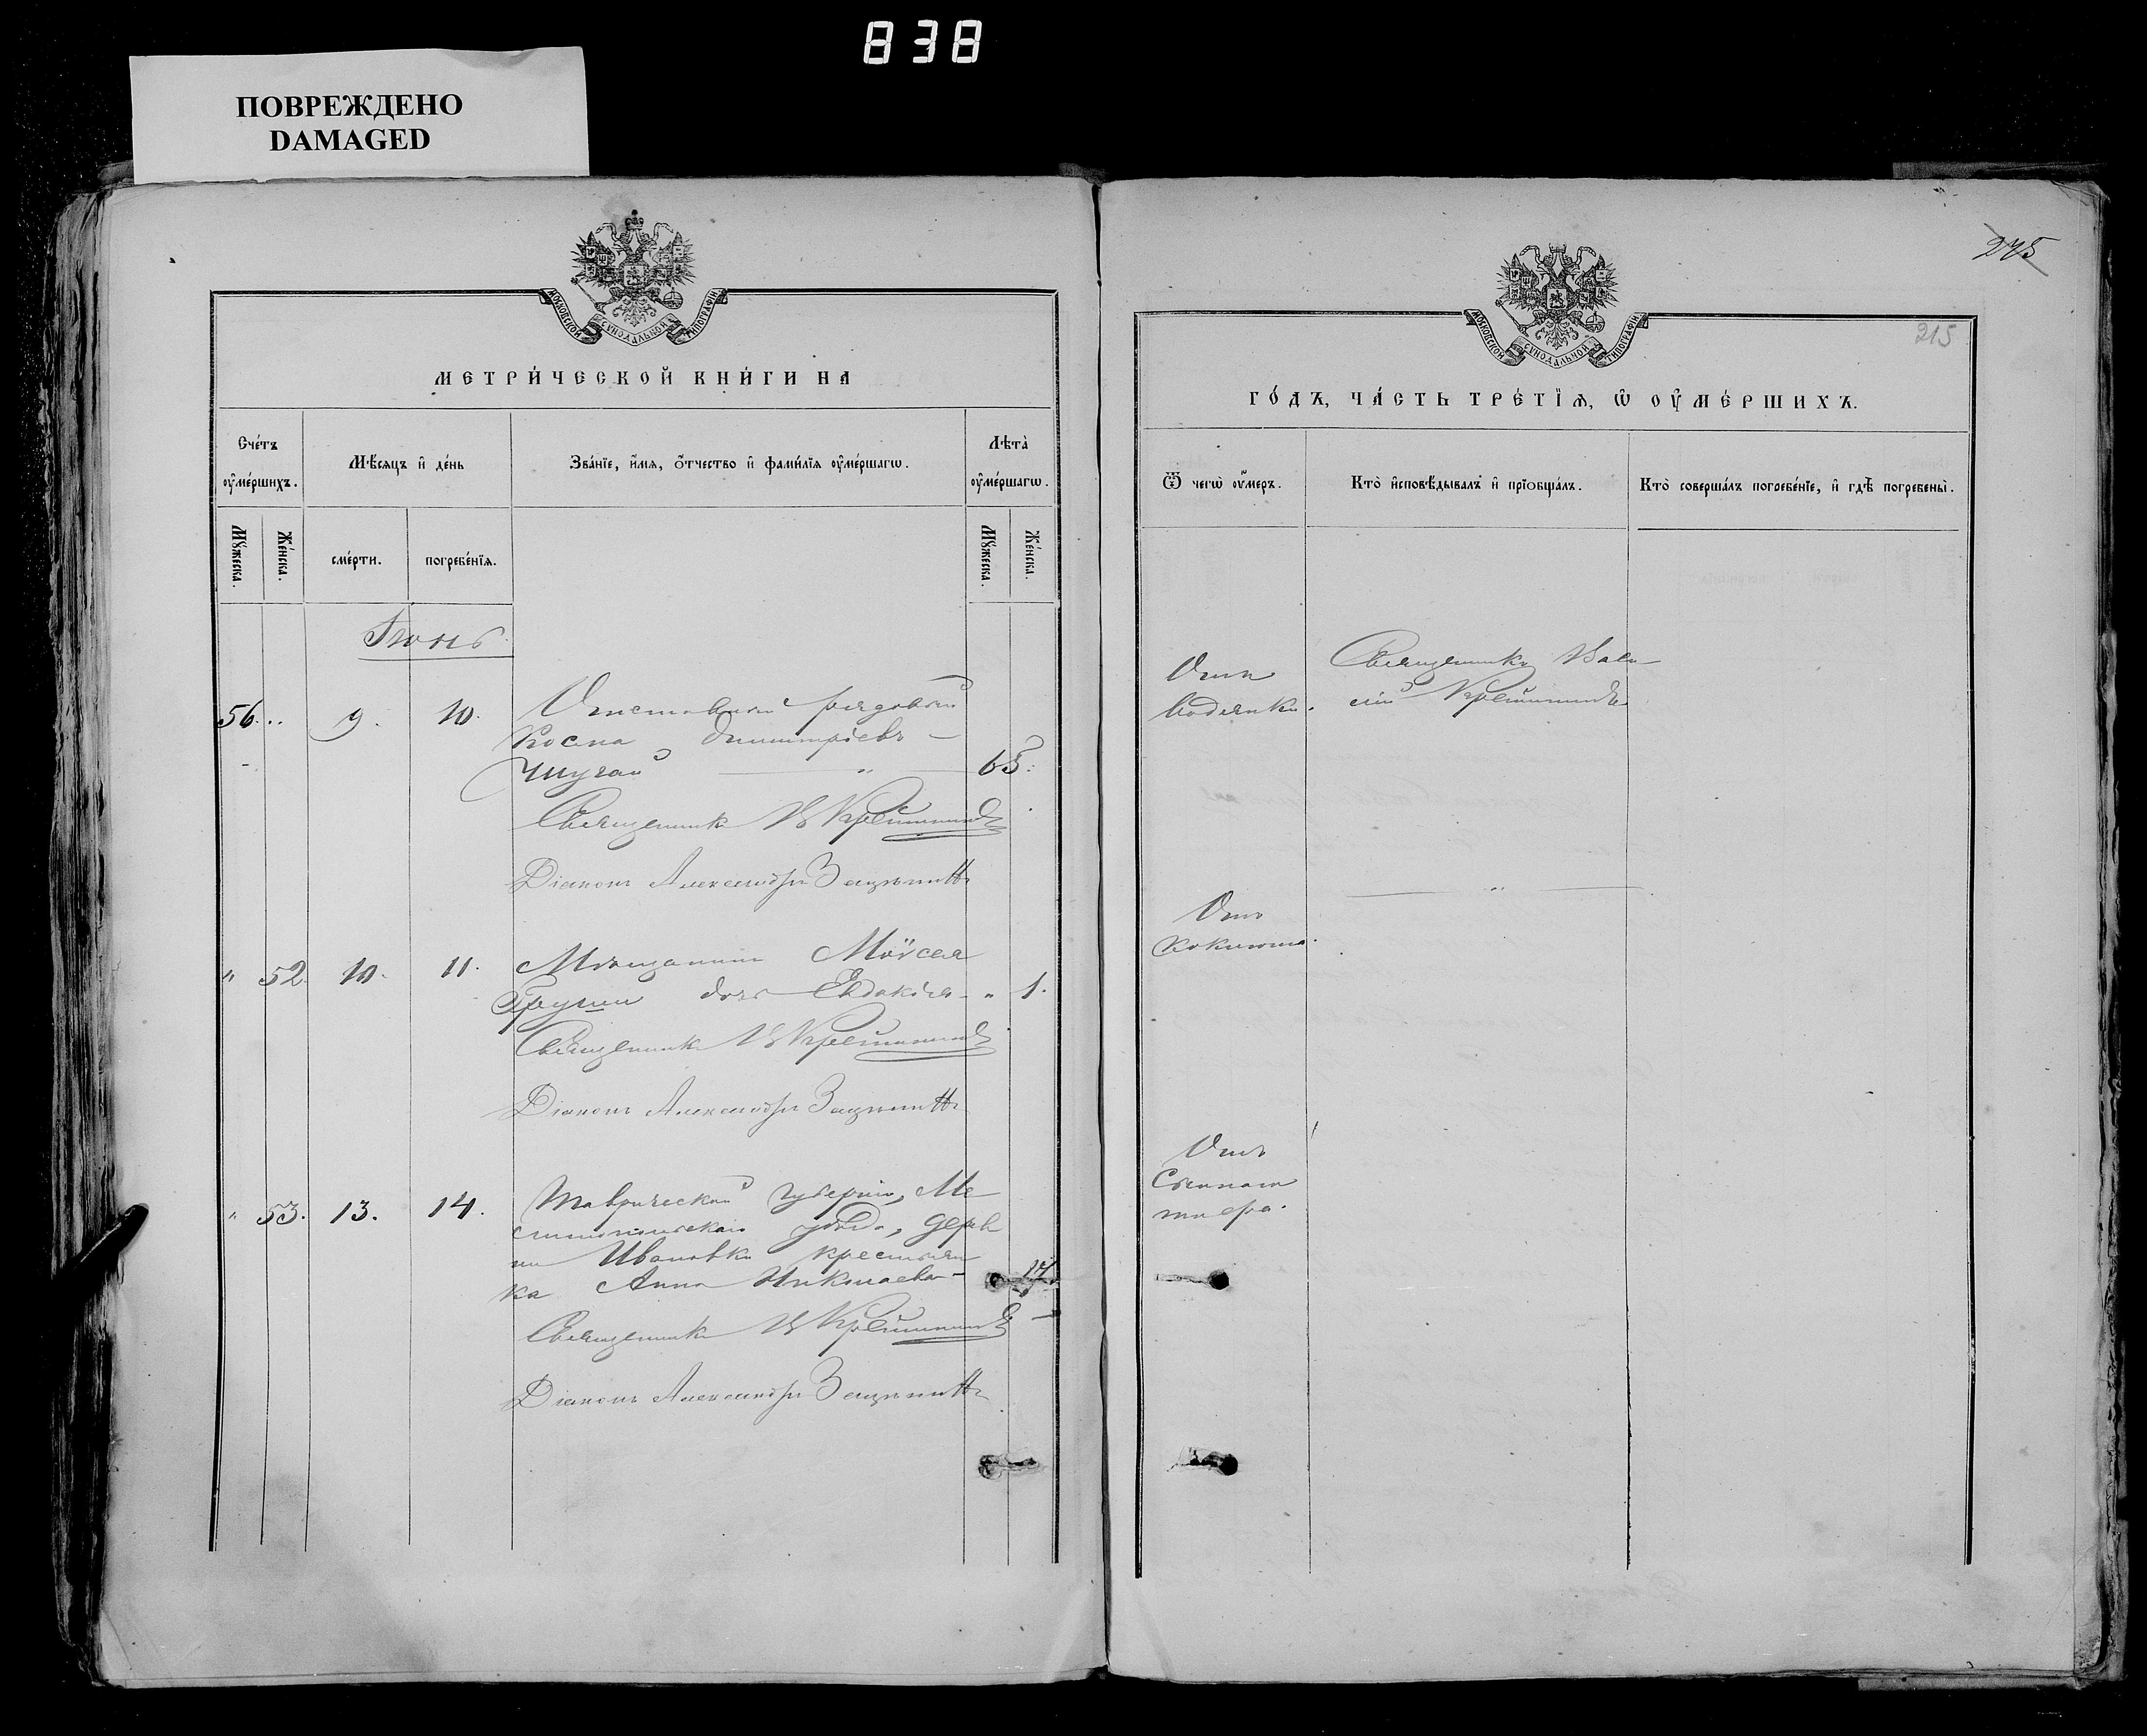 838
ПОВРЕЖДЕНО
DAMAGED
МОСКОВСКОЙ СѴНОДАЛЬНОЙ ТИПОГРАФІИ
МЕТРИ́ЧЕСКОЙ КНИ́ГИ НА
Сче́тъ ᲂу҆ме́ршихъ.
Мѣ́сяцъ и҆ де́нь
Зва́нїе, и҆́мя, ѻ҆́тчество и҆ фами́лїя ᲂу҆ме́ршагѡ.
Лѣта̀ ᲂу҆ме́ршагѡ.
Мꙋ́жеска.
Же́нска.
сме́рти.
погребе́нїя.
Мꙋ́жеска.
Же́нска.
Іюнь
56. 9. 10. Отставной рядовой
Косма Димитріевъ
65.
Священникъ В Крейшинъ
Діаконъ Александръ
" 52. 10. 11. Мѣщанина Моѵсея
дочь Евдокія " 1.
Священникъ В
Діаконъ Александръ
" 53. 13. 14. Таврической губерніи, Ме
литопольскаго уѣзда, дерев
ни Ивановки крестьян
ка Анна Николаева
Священникъ В
Діаконъ Александръ
275
215
МОСКОВСКОЙ СѴНОДАЛЬНОЙ ТИПОГРАФІИ
ГО́ДЪ, ЧА́СТЬ ТРЕ́ТЇѦ, Ѡ҆ ОУ҆МЕ́РШИХЪ.
Ѿ чегѡ̀ ᲂу҆́меръ.
Кто̀ и҆сповѣ́дывалъ и҆ прїѡбща́лъ.
Кто̀ соверша́лъ погребе́нїе, и҆ гдѣ̀ погребены̀.
Отъ
водянки.
Священникъ Васи
лій
Отъ
коклюша.
Отъ